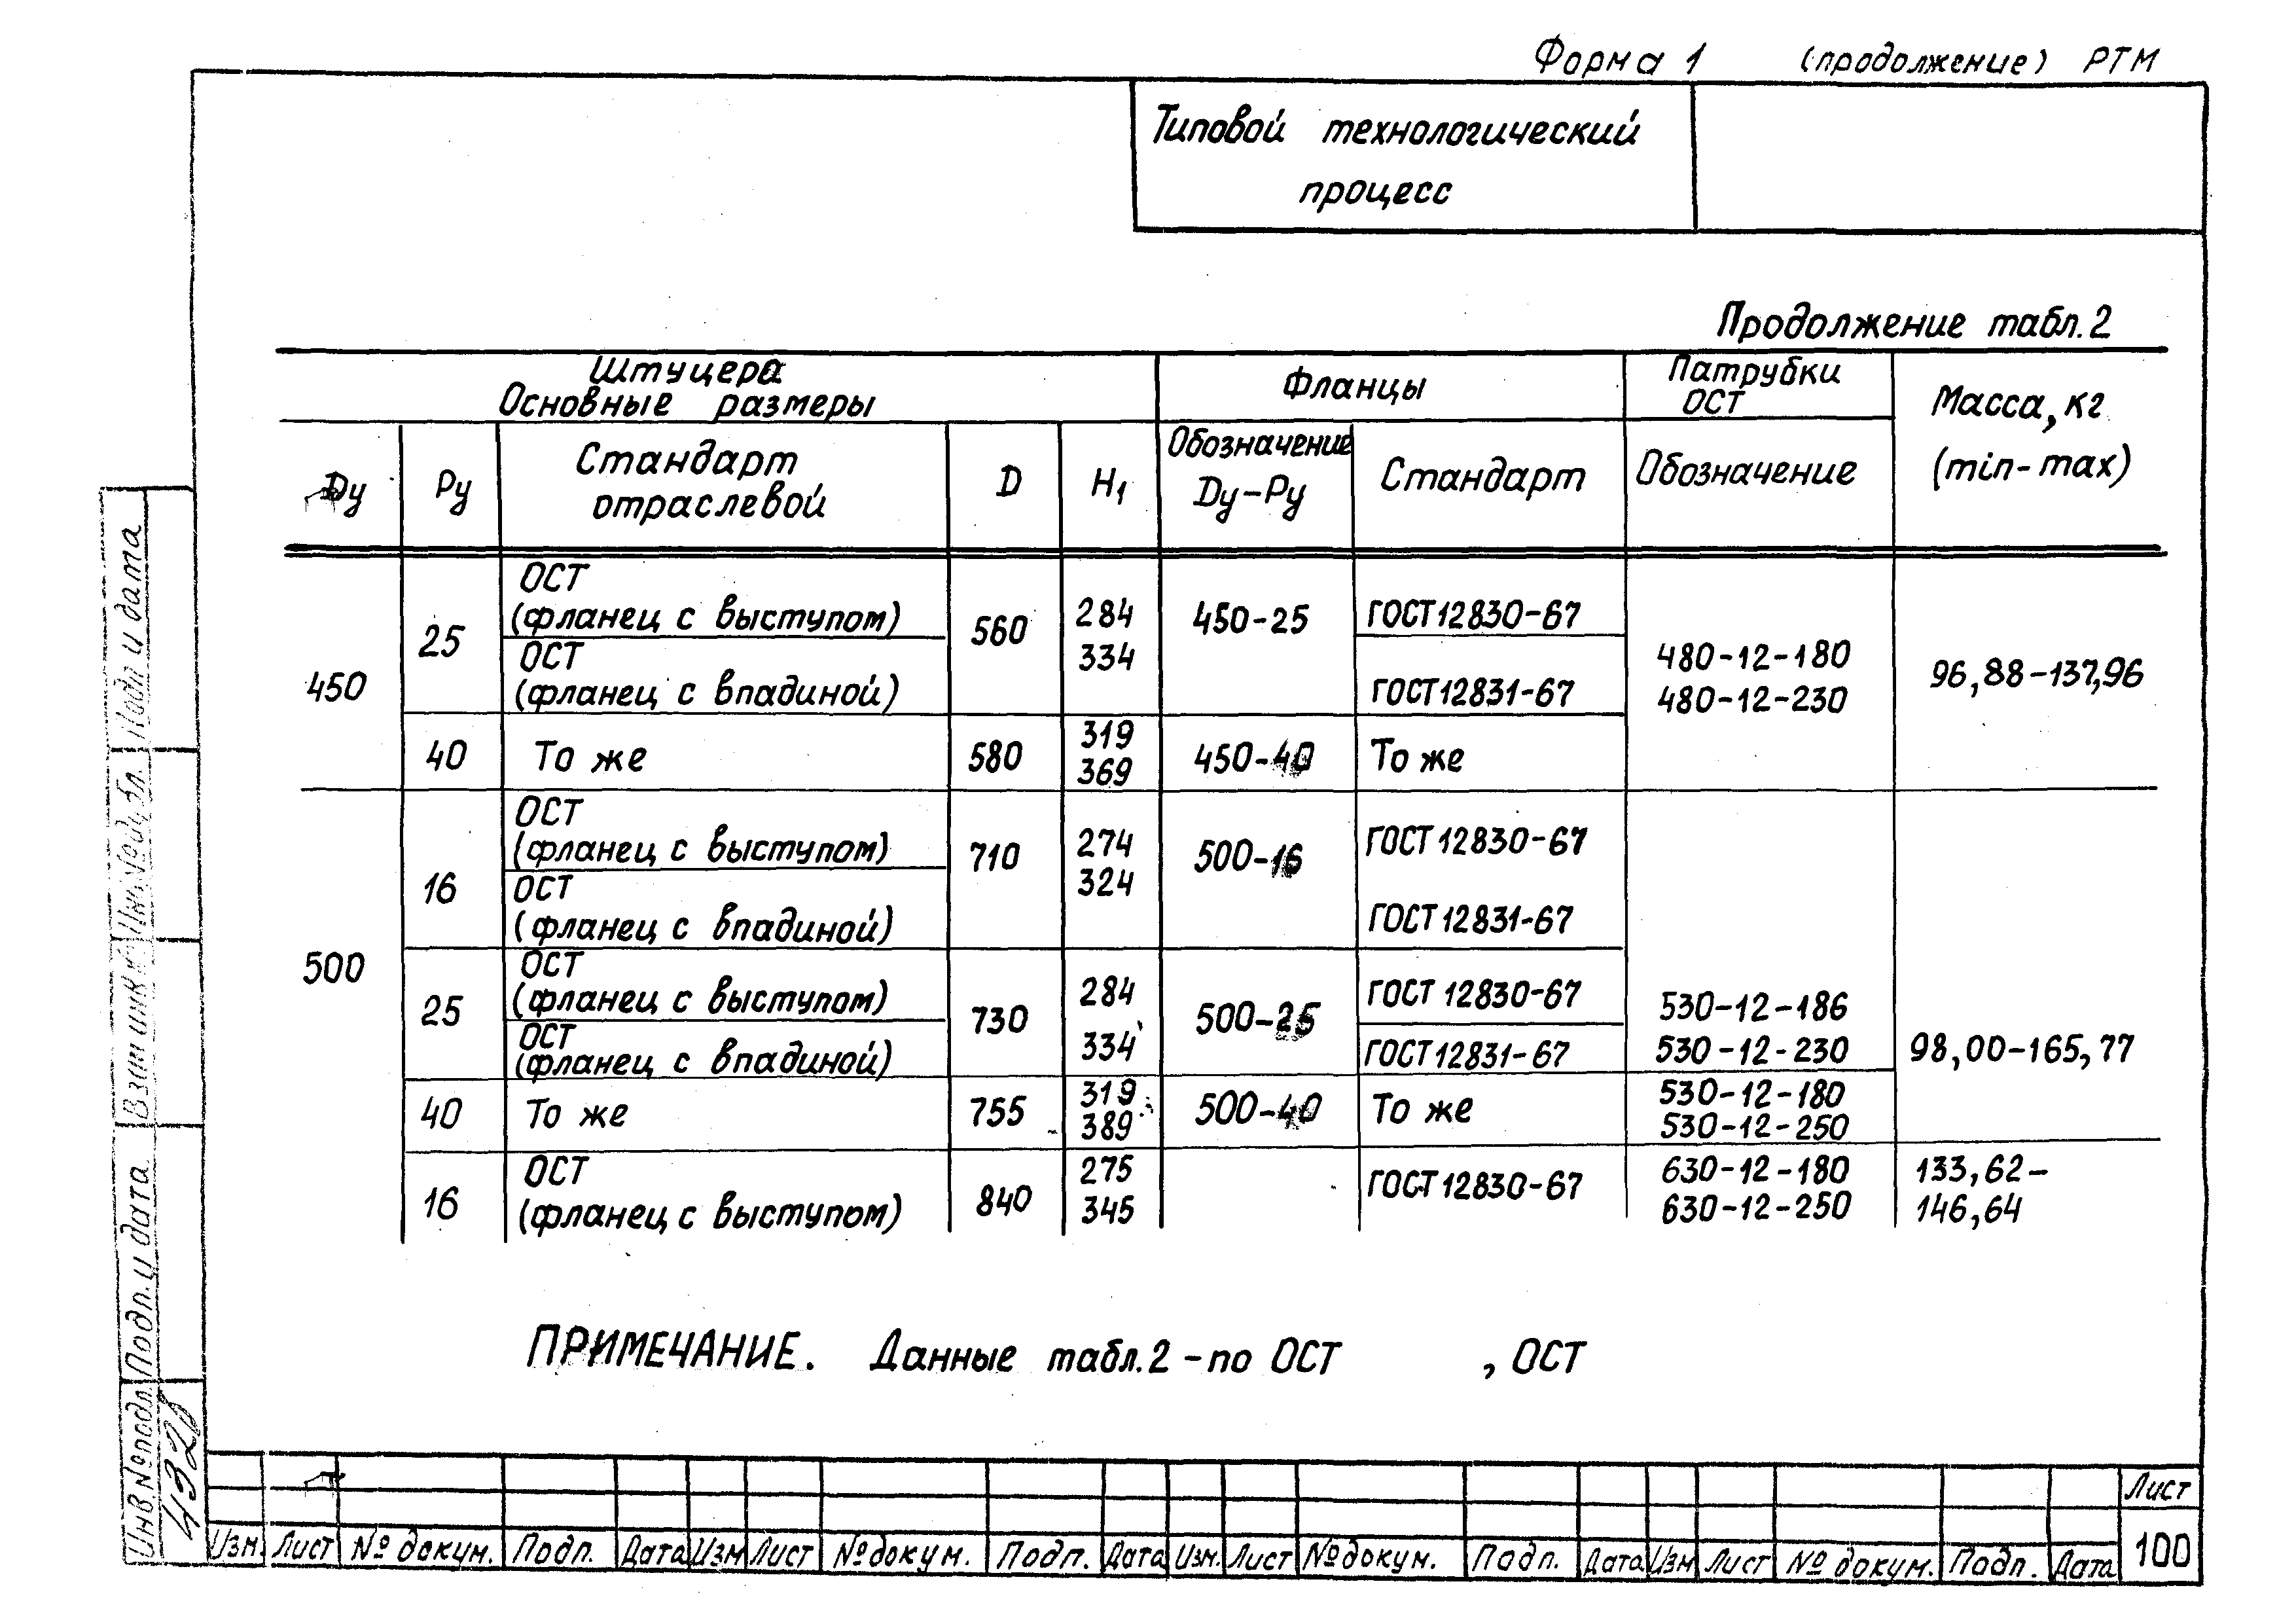 Форма 1 (продолжение) РТМ
Типовой технологический
процесс
Продолжение табл.2
Штуцера
Основные размеры
Фланцы
Патрубки
ОСТ
Масса, кг
(min-max)
Dу
Ру
Стандарт
отраслевой
D
H1
Обозначение
Dу-Ру
Стандарт
Обозначение
450
25
ОСТ
(фланец с выступом)
ОСТ
(фланец с впадиной)
560
284
334
450-25
ГОСТ 12830-67
ГОСТ 12831-67
480-12-180
480-12-230
96,88-137,96
40
То же
580
319
369
450-40
То же
500
16
ОСТ
(фланец с выступом)
ОСТ
(фланец с впадиной)
710
274
324
500-16
ГОСТ 12830-67
ГОСТ 12831-67
25
ОСТ
(фланец с выступом)
ОСТ
(фланец с впадиной)
730
284
334
500-25
ГОСТ 12830-67
ГОСТ 12831-67
530-12-186
530-12-230
98,00-165,77
40
То же
755
319
389
500-40
То же
530-12-180
530-12-250
16
ОСТ
(фланец с выступом)
840
275
345
ГОСТ 12830-67
630-12-180
630-12-250
133,62-
146,64
ПРИМЕЧАНИЕ. Данные табл.2 -по ОСТ , ОСТ
Подп и дата
Подп. и дата
Инв.№подл.
Изм. Лист № докум. Подп. Дата Изм Лист №докум. Подп. Дата Изм. Лист №докум. Подп. Дата Изм Лист № докум. Подп. Дата
Лист
100